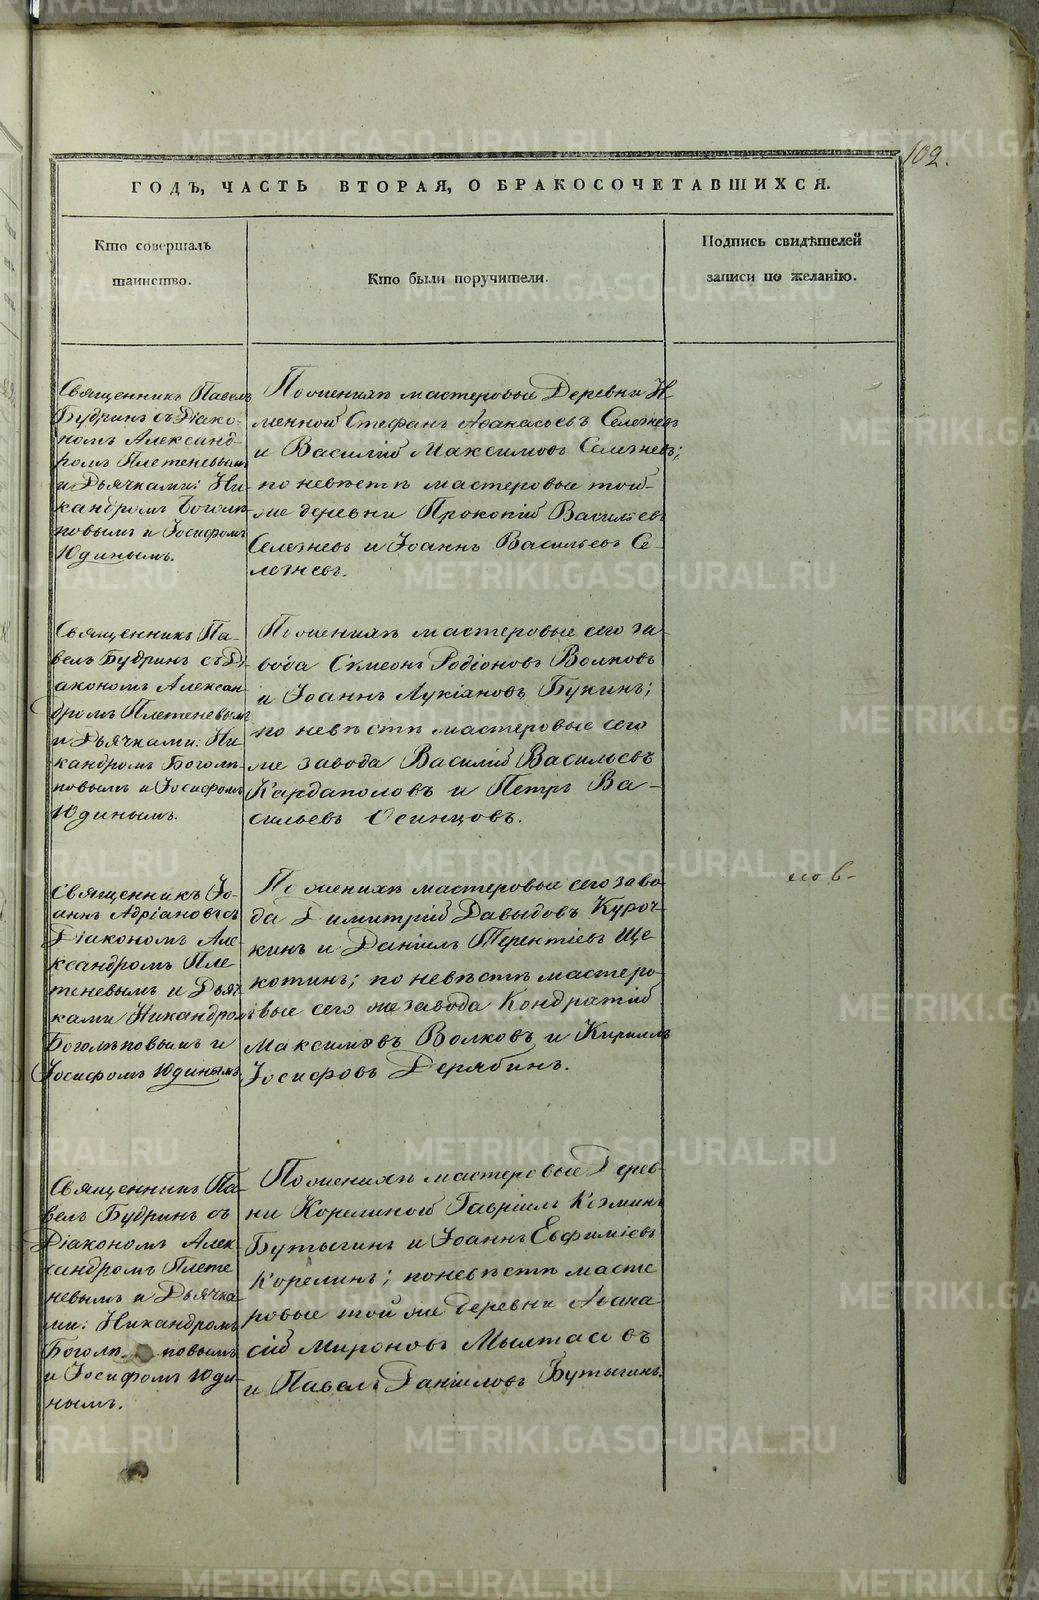 102.
ГОДЪ, ЧАСТЬ ВТОРАЯ, О БРАКОСОЧЕТАВШИХСЯ.
Кто совершалъ
таинство.
Кто были поручители.
Подпись свидѣтелей
записи по желанію.
Священникъ Павелъ
Будринъ съ Діако-
номъ Александ-
ромъ Плетеневымъ
и Дьячками: Ни-
кандромъ Боголѣ-
повымъ и Іосифомъ
Юдинымъ.
По женихѣ мастеровые Деревни И-
менной Стефанъ Аѳанасьевъ Селезневъ
и Василій Максимовъ Селезневъ;
по невѣстѣ мастеровые той-
же деревни Прокопій Васильевъ
Селезневъ и Іоаннъ Васильевъ Се-
лезневъ.
Священникъ Па-
велъ Будринъ съ Ді-
акономъ Алексан-
дромъ Плетеневымъ
и Дьячками: Ни-
кандромъ Боголѣ-
повымъ и Іосифомъ
Юдинымъ.
По женихѣ мастеровые сего за-
вода Симеонъ Родіоновъ Волковъ
и Іоаннъ Лукіяновъ Букинъ;
по невѣстѣ мастеровые сего
же завода Василій Васильевъ
Кардаполовъ и Петръ Ва-
сильевъ Осинцовъ.
Священникъ Іо-
аннъ Адріановъ съ
Діакономъ Але-
ксандромъ Пле-
теневымъ и Дьяч-
ками Никандромъ
Боголѣповымъ и
Іосифомъ Юдинымъ.
По женихѣ мастеровые сего заво-
да Димитрій Давыдовъ Куроч-
кинъ и Даніилъ Терентіевъ Ще-
котинъ; по невѣстѣ мастеро-
вые сего же завода Кондратій
Максимовъ Волковъ и Кириллъ
Іосифовъ Дерябинъ.
Священникъ Па-
велъ Будринъ съ
Діакономъ Алек-
сандромъ Плете
невымъ и Дьячка-
ми: Никандромъ
Боголѣ повымъ
и Іосифомъ Юди-
нымъ.
По женихѣ мастеровые Дерев-
ни Корелиной Гавріилъ Козминъ
Бутыгинъ и Іоаннъ Евфиміевъ
Корелинъ; по невѣстѣ масте
ровые той же деревни Аѳана
сій Мироновъ Мылтасовъ
и Павелъ Даніиловъ Бутыгинъ.
METRIKI.GASO-URAL.RU